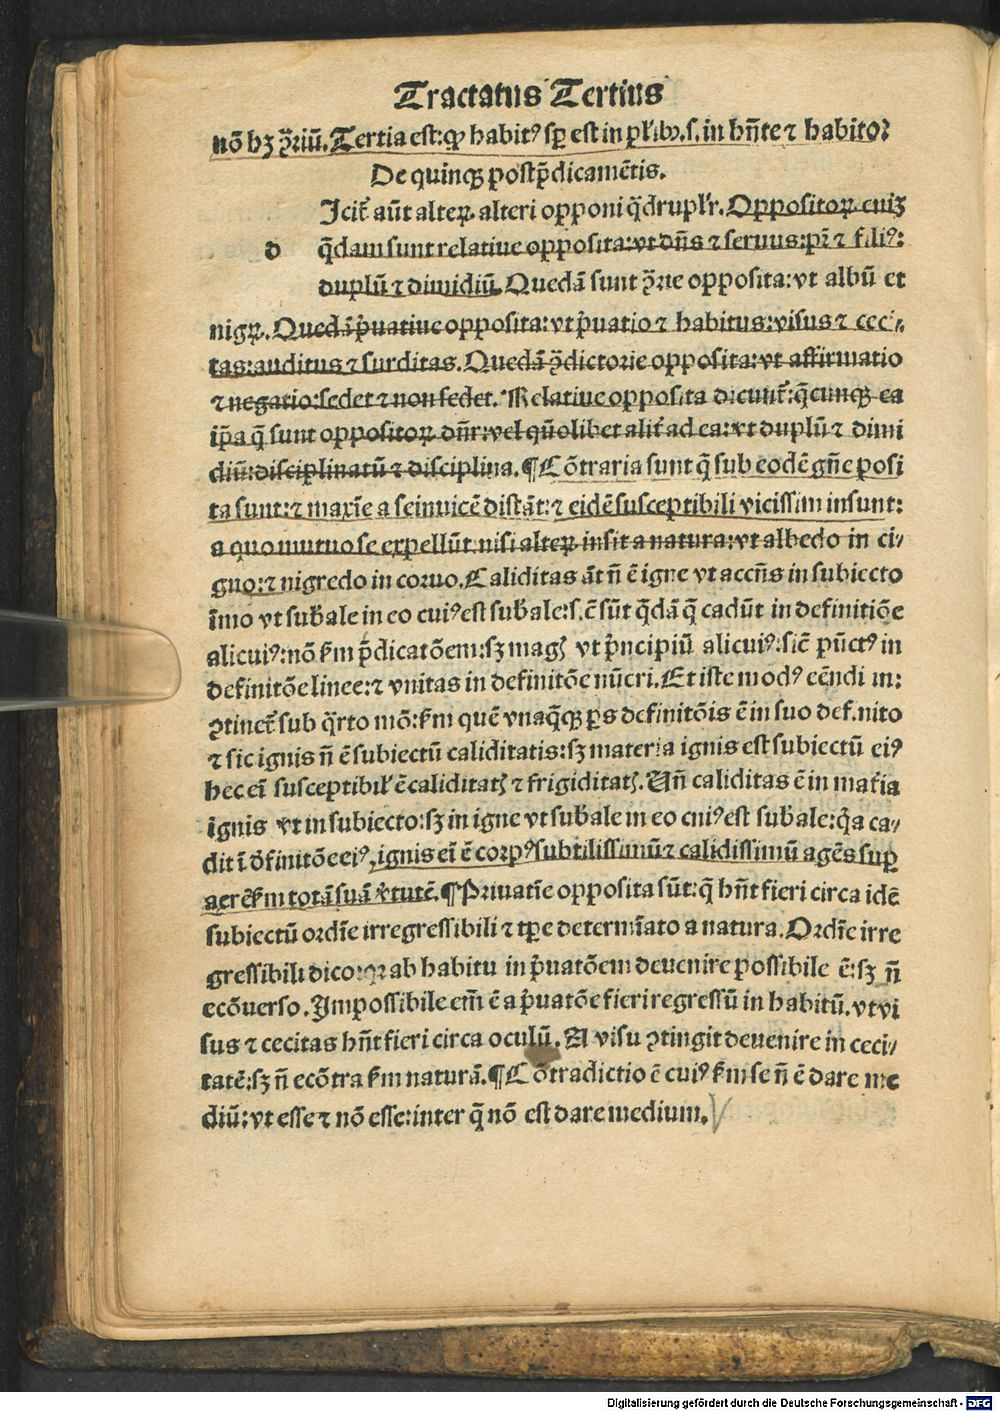 Tractatus Tertius
nõ hʒ ꝯ̃riũ. Tertia est: ꝙ habitꝰ sꝑ est in pl'ibꝰ .s. in hñte ⁊ habito.
De quinqꝫ postp̃dicamẽtis.
Icit̃ aũt alteꝝ alteri opponi q̃drupl'r. Oppositoꝝ eniʒ
d q̃dam sunt relatiue opposita: vt dñs ⁊ seruus: pr̃ ⁊ filiꝰ:
duplũ ⁊ dimidiũ. Quedã sunt ꝯ̃rie opposita: vt albũ et
nigꝝ. Quedã p̃uatiue opposita: vt p̃uatio ⁊ habitus: visus ⁊ ceci⸗
tas: auditus ⁊ surditas. Quedã ꝯ̃dictorie opposita: vt affirmatio
⁊ negatio: sedet ⁊ non sedet. Relatiue opposita dicunt̃: q̃cunqꝫ ea
ip̃a q̃ sunt oppositoꝝ dñr: vel quõlibet alit̃ ad ea: vt duplũ ⁊ dimi
diũ: disciplinatũ ⁊ disciplina. ¶ Cõtraria sunt q̃ sub eodẽ gñe posi
ta sunt: ⁊ maxĩe a seinuicẽ distãt: ⁊ eidẽ susceptibili vicissim insunt:
a quo mutuo se expellũt. nisi alteꝝ insit a natura: vt albedo in ci⸗
gno: ⁊ nigredo in coruo. Caliditas ãt ñ ẽ igne vt accñs in subiecto
ĩmo vt sub̾ale in eo cuiꝰ est sub̾ale: .s. ẽ sũt q̃dã q̃ cadũt in definitiõe
alicuiꝰ: nõ ẜm p̃dicatõem: sʒ magꝭ vt p̃ncipiũ alicuiꝰ: sic̃ pũctꝰ in
definitõe linee: ⁊ vnitas in definitõe nũeri. Et iste modꝰ eẽndi in:
ꝯtinet̃ sub q̃rto mõ: ẜm quẽ vnaq̃qꝫ ꝑs definitõis ẽ in suo definito
⁊ sic ignis ñ ẽ subiectũ caliditatis: sʒ materia ignis est subiectũ eiꝰ
hec eĩ susceptibil' ẽ caliditatꝭ ⁊ frigiditatꝭ. Uñ caliditas ẽ in mat̾ia
ignis vt in subiecto: sʒ in igne vt sub̾ale in eo cuiꝰ est sub̾ale: q̃a ca⸗
dit ĩ d̾finitõe eiꝰ, ignis eĩ ẽ corpꝰ subtilissimũ ⁊ calidissimũ agẽs suꝑ
aerẽ ẜm totã suã v̾tutẽ. ¶ Priuatĩe opposita sũt: q̃ hñt fieri circa idẽ
subiectũ ordĩe irregressibili ⁊ tꝑe determĩato a natura. Ordĩe irre
gressibili dico: qꝛ ab habitu in p̃uatõem deuenire possibile ẽ: sʒ ñ
ecõuerso. Impossibile em̃ ẽ a p̃uatõe fieri regressũ in habitũ. vt vi
sus ⁊ cecitas hñt fieri circa oculũ. A visu ꝯtingit deuenire in ceci⸗
tatẽ: sʒ ñ ecõtra ẜm naturã. ¶ Cõtradictio ẽ cuiꝰ ẜm se ñ ẽ dare me
diũ: vt esse ⁊ nõ esse: inter q̃ nõ est dare medium.
Digitalisierung gefördert durch die Deutsche Forschungsgemeinschaft - DFG